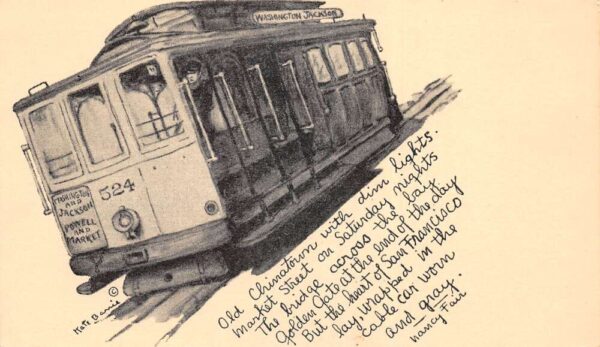 WASHINGTON JACKSON
524
WASHINGTON
AND
JACKSON
POWELL
AND
MARKET
Old Chinatown with dim lights.
Market Street on Saturday nights
The bridge across the bay
Golden Gate at the end of the day
But the heart of San Francisco
lay, wrapped in the
cable car worn
and gray.
Nancy Fair
©